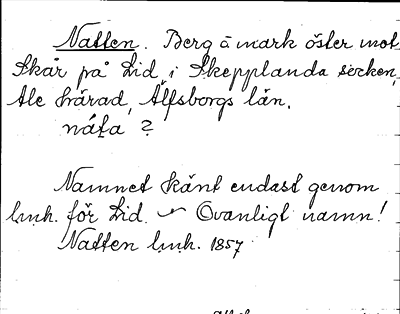 Natten. Berg å mark öster mot
Skår på Lid, i Skepplanda socken,
Ale härad, Älfsborgs län.
nát̯a ?
Namnet känt endast genom
l.m.h. för Lid. — Ovanligt namn!
Natten l.m.h. 1857